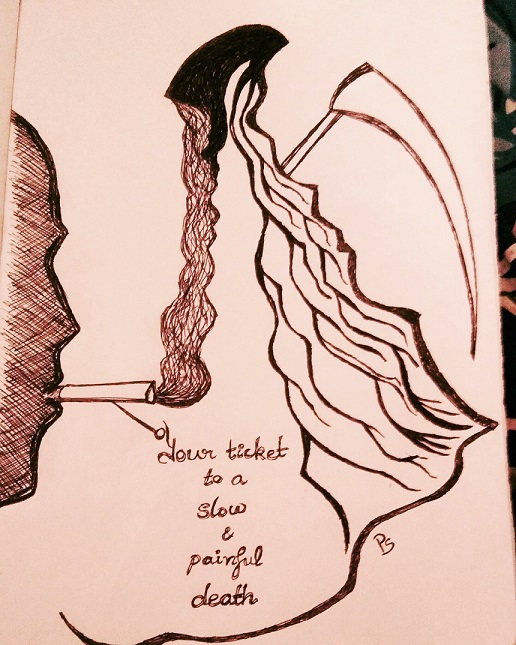 Your ticket
to a
slow
&
painful
death
PS